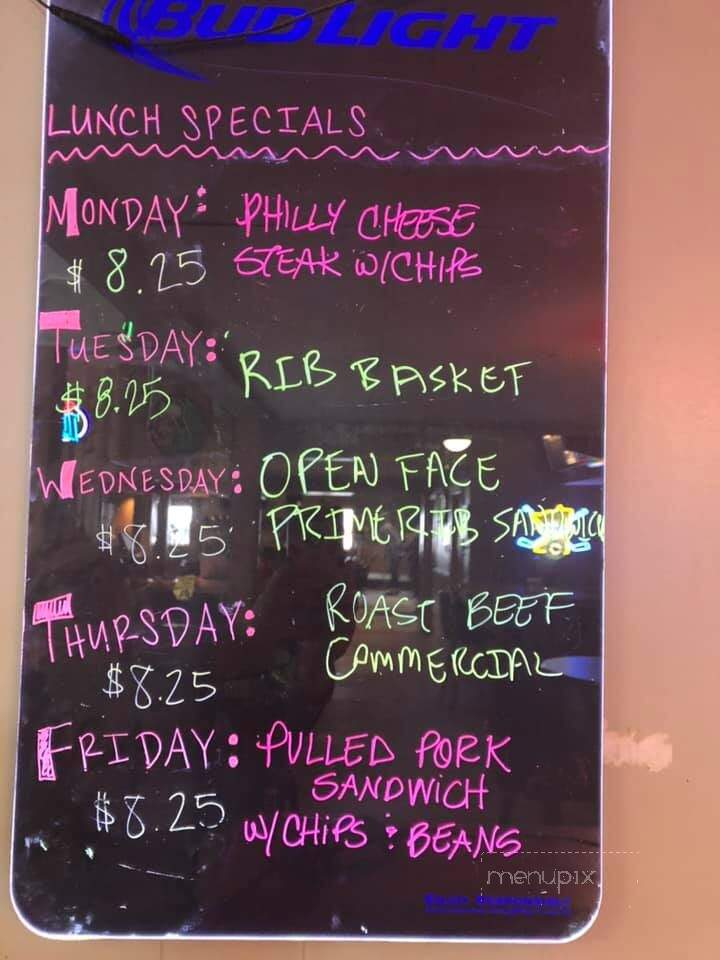 BUD LIGHT
LUNCH SPECIALS
MONDAY: PHILLY CHEESE
$ 8.25 STEAK W/CHIPS
TUESDAY: RIB BASKET
$8.25
WEDNESDAY: OPEN FACE
$8.25 PRIME RIB SANDWICH
THURSDAY: ROAST BEEF
$8.25 COMMERCIAL
FRIDAY: PULLED PORK
SANDWICH
$8.25 W/CHIPS & BEANS
menupix